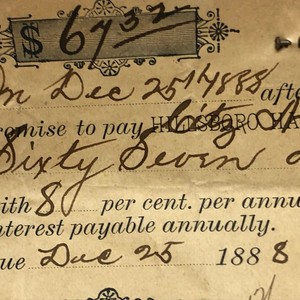 $ 67 32
On Dec 25th 1888 after
promise to pay HILLSBORO
Sixty Seven
with 8 per cent. per annu
nterest payable annually.
ue Dec 25 1888